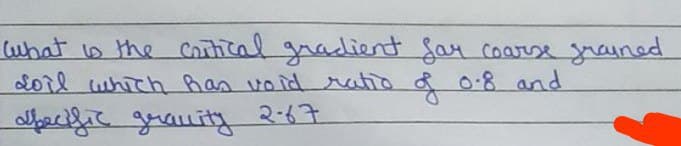 What is the critical gradient for coarse grained
soil which has void ratio of 0.8 and
specific gravity 2.67